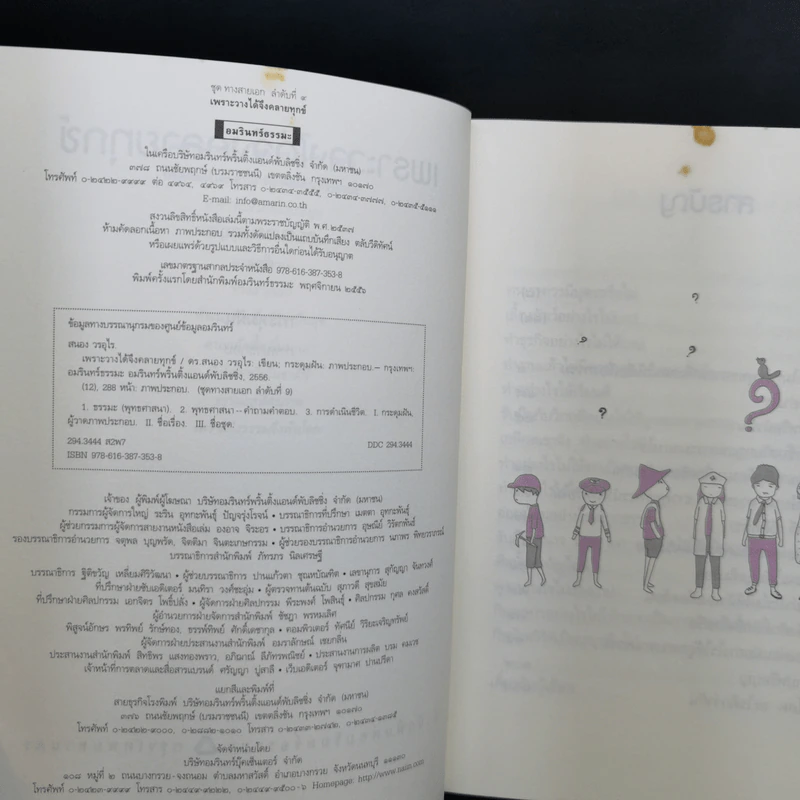 ชุด ทางสายเอก ลำดับที่ ๙
เพราะวางได้จึงคลายทุกข์
อมรินทร์ธรรมะ
ในเครือบริษัทอมรินทร์พริ้นติ้งแอนด์พับลิชชิ่ง จำกัด (มหาชน)
๓๗๘ ถนนชัยพฤกษ์ (บรมราชชนนี) เขตตลิ่งชัน กรุงเทพฯ ๑๐๑๗๐
โทรศัพท์ ๐-๒๔๒๒-๙๙๙๙ ต่อ ๔๙๖๔, ๔๙๖๙ โทรสาร ๐-๒๔๓๔-๓๕๕๕, ๐-๒๔๓๔-๓๗๗๗, ๐-๒๔๓๕-๕๑๑๑
E-mail: info@amarin.co.th
สงวนลิขสิทธิ์หนังสือเล่มนี้ตามพระราชบัญญัติ พ.ศ.๒๕๓๗
ห้ามคัดลอกเนื้อหา ภาพประกอบ รวมทั้งดัดแปลงเป็นแถบบันทึกเสียง ตลับวีดิทัศน์
หรือเผยแพร่ด้วยรูปแบบและวิธีการอื่นใดก่อนได้รับอนุญาต
เลขมาตรฐานสากลประจำหนังสือ 978-616-387-353-8
พิมพ์ครั้งแรกโดยสำนักพิมพ์อมรินทร์ธรรมะ พฤศจิกายน ๒๕๕๖
ข้อมูลทางบรรณานุกรมของศูนย์ข้อมูลอมรินทร์
สนอง วรอุไร.
เพราะวางได้จึงคลายทุกข์ / ดร.สนอง วรอุไร: เขียน; กระตุมผัน: ภาพประกอบ.– กรุงเทพฯ:
อมรินทร์ธรรมะ อมรินทร์พริ้นติ้งแอนด์พับลิชชิ่ง, 2556.
(12), 288 หน้า: ภาพประกอบ. (ชุดทางสายเอก ลำดับที่ 9)
1. ธรรมะ (พุทธศาสนา). 2. พุทธศาสนา – คำถามคำตอบ. 3. การดำเนินชีวิต. I. กระตุมผัน,
ผู้วาดภาพประกอบ. II. ชื่อเรื่อง. III. ชื่อชุด.
294.3444 ส2พ7 DDC 294.3444
ISBN 978-616-387-353-8
เจ้าของ ผู้พิมพ์ผู้โฆษณา บริษัทอมรินทร์พริ้นติ้งแอนด์พับลิชชิ่ง จำกัด (มหาชน)
กรรมการผู้จัดการใหญ่ ระริน อุทกะพันธุ์ ปัญจรุ่งโรจน์ • บรรณาธิการที่ปรึกษา เมตตา อุทกะพันธุ์
ผู้ช่วยกรรมการผู้จัดการสายงานหนังสือเล่ม องอาจ จิระอร • บรรณาธิการอำนวยการ อุษณีย์ วิรัตกพันธ์
รองบรรณาธิการอำนวยการ จตุพล บุญพรัด, จิตติมา จินตะเกษกรรม • ผู้ช่วยรองบรรณาธิการอำนวยการ นภาพร พิทยาวราภรณ์
บรรณาธิการสำนักพิมพ์ ภัทรภร นิลเศรษฐี
บรรณาธิการ ฐิติขวัญ เหลี่ยมศิริวัฒนา • ผู้ช่วยบรรณาธิการ ปานแก้วตา ชุณหบัณฑิต • เลขานุการ สุกัญญา จันทวงศ์
ที่ปรึกษาฝ่ายซับเอดิเตอร์ มนทิรา วงศ์ชะอุ่ม • ผู้ตรวจทานต้นฉบับ สุภาวดี สุขสมัย
ที่ปรึกษาฝ่ายศิลปกรรม เอกจิตร โพธิ์ปลั่ง • ผู้จัดการฝ่ายศิลปกรรม พีระพงศ์ โพสินธุ์ • ศิลปกรรม
ผู้อำนวยการฝ่ายจัดการสำนักพิมพ์ ชัชฎา พรหมเลิศ
พิสูจน์อักษร พรทิพย์ รักษ์ทอง, ธรรพ์ทิพย์ ศักดิ์เดชากุล • คอมพิวเตอร์ ทัศนีย์ วีริยะเจริญทรัพย์
ผู้จัดการฝ่ายประสานงานสำนักพิมพ์ อมราลักษณ์ เชยกลิ่น
ประสานงานสำนักพิมพ์ สิทธิพร แสงทองพราว, อภิฌาณ์ ลีภัทรพณิชย์ • ประสานงานการผลิต
เจ้าหน้าที่การตลาดและสื่อสารแบรนด์ ศรัญญา บู่สาลี • เว็บเอดิเตอร์ จุฑามาศ ปานปรีดา
แยกสีและพิมพ์ที่
สายธุรกิจโรงพิมพ์ บริษัทอมรินทร์พริ้นติ้งแอนด์พับลิชชิ่ง จำกัด (มหาชน)
๓๗๖ ถนนชัยพฤกษ์ (บรมราชชนนี) เขตตลิ่งชัน กรุงเทพฯ ๑๐๑๗๐
โทรศัพท์ ๐-๒๔๒๒-๙๐๐๐, ๐-๒๘๘๒-๑๐๑๐ โทรสาร ๐-๒๔๓๓-๒๗๔๒, ๐-๒๔๓๔-๑๓๘๕
จัดจำหน่ายโดย
บริษัทอมรินทร์บุ๊คเซ็นเตอร์ จำกัด
๑๐๘ หมู่ที่ ๒ ถนนบางกรวย-จงถนอม ตำบลมหาสวัสดิ์ อำเภอบางกรวย จังหวัดนนทบุรี ๑๑๑๓๐
โทรศัพท์ ๐-๒๔๒๓-๙๙๙๙ โทรสาร ๐-๒๔๔๙-๙๒๒๒, ๐-๒๔๔๙-๙๕๐๐-๖ Homepage: http://www.naiin.com
?
?
?
?
?